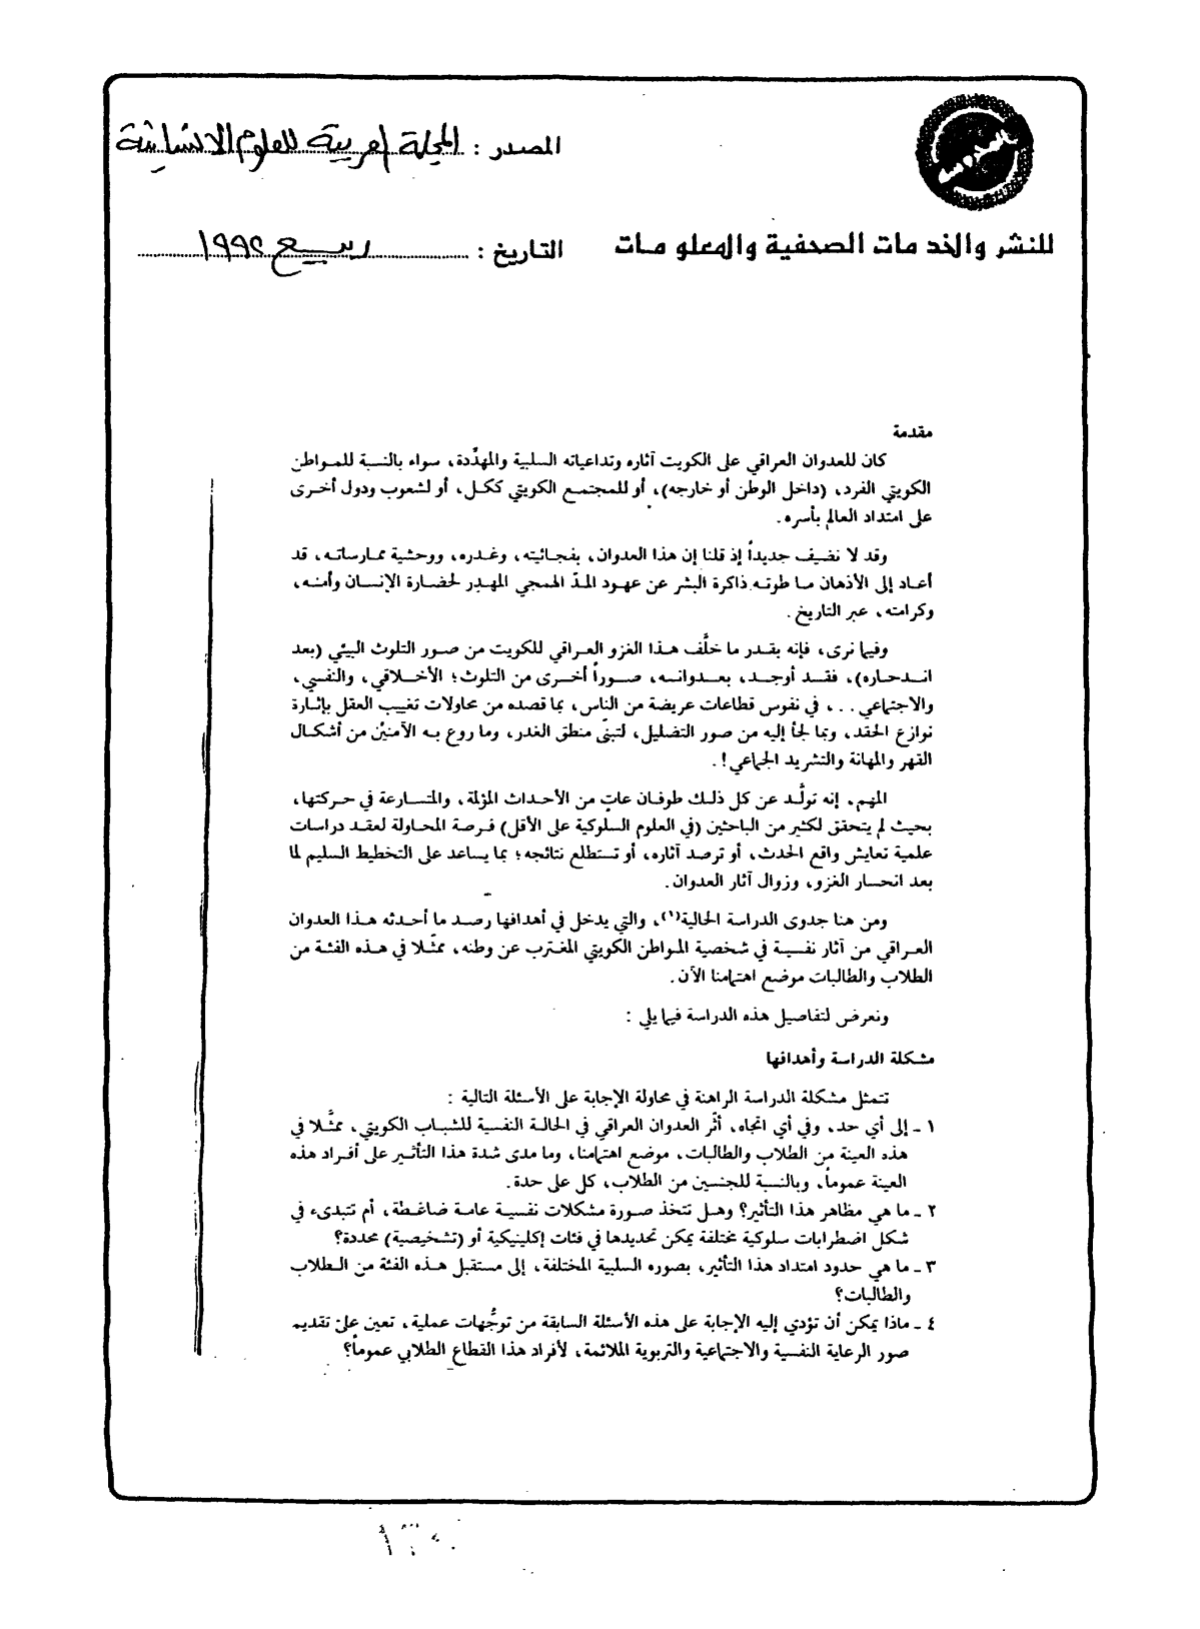 المصدر : المجلة العربية للعلوم الانسانية
للنشر والخدمات الصحفية والمعلومات
التاريخ : ربيع ١٩٩٢
مقدمة
كان للعدوان العراقي على الكويت آثاره وتداعياته السلبية والمهدِّدة، سواء بالنسبة للمواطن
الكويتي الفرد، (داخل الوطن أو خارجه)، أو للمجتمع الكويتي ككل، أو لشعوب ودول أخرى
على امتداد العالم بأسره.
وقد لا نضيف جديداً إذ قلنا إن هذا العدوان، بفجائيته، وغدره، ووحشية ممارساته، قد
أعاد إلى الأذهان ما طوته ذاكرة البشر عن عهود المدّ الهمجي المهدِر لحضارة الإنسان وأمنه،
وكرامته، عبر التاريخ.
وفيما نرى، فإنه بقدر ما خلَّف هذا الغزو العراقي للكويت من صور التلوث البيئي (بعد
اندحاره)، فقد أوجد، بعدوانه، صوراً أخرى من التلوث؛ الأخلاقي، والنفسي،
والاجتماعي . . ، في نفوس قطاعات عريضة من الناس، بما قصده من محاولات تغييب العقل بإثارة
نوازع الحقد، وبما لجأ إليه من صور التضليل، لتبنّى منطق الغدر، وما روع به الآمنين من أشكال
القهر والمهانة والتشريد الجماعي!.
المهم، إنه تولَّد عن كل ذلك طوفان عاتٍ من الأحداث المؤلمة، والمتسارعة في حركتها،
بحيث لم يتحقق لكثير من الباحثين (في العلوم السلوكية على الأقل) فرصة المحاولة لعقد دراسات
علمية تعايش واقع الحدث، أو ترصد آثاره، أو تستطلع نتائجه؛ بما يساعد على التخطيط السليم لما
بعد انحسار الغزو، وزوال آثار العدوان.
ومن هنا جدوى الدراسة الحالية(١)، والتي يدخل في أهدافها رصد ما أحدثه هذا العدوان
العراقي من آثار نفسية في شخصية المواطن الكويتي المغترب عن وطنه، ممثّلا في هذه الفئة من
الطلاب والطالبات موضع اهتمامنا الآن.
ونعرض لتفاصيل هذه الدراسة فيما يلي :
مشكلة الدراسة وأهدافها
تتمثل مشكلة الدراسة الراهنة في محاولة الإجابة على الأسئلة التالية :
١ ـ إلى أي حد، وفي أي اتجاه، أثّر العدوان العراقي في الحالة النفسية للشباب الكويتي، ممثَّلا في
هذه العينة من الطلاب والطالبات، موضع اهتمامنا، وما مدى شدة هذا التأثير على أفراد هذه
العينة عموماً، وبالنسبة للجنسين من الطلاب، كل على حدة.
٢ ـ ما هي مظاهر هذا التأثير؟ وهل تتخذ صورة مشكلات نفسية عامة ضاغطة، أم تتبدىء في
شكل اضطرابات سلوكية مختلفة يمكن تحديدها في فئات إكلينيكية أو (تشخيصية) محددة؟
٣ ـ ما هي حدود امتداد هذا التأثير، بصوره السلبية المختلفة، إلى مستقبل هذه الفئة من الطلاب
والطالبات؟
٤ ـ ماذا يمكن أن تؤدي إليه الإجابة على هذه الأسئلة السابقة من توجُّهات عملية، تعين على تقديم
صور الرعاية النفسية والاجتماعية والتربوية الملائمة، لأفراد هذا القطاع الطلابي عموماً؟